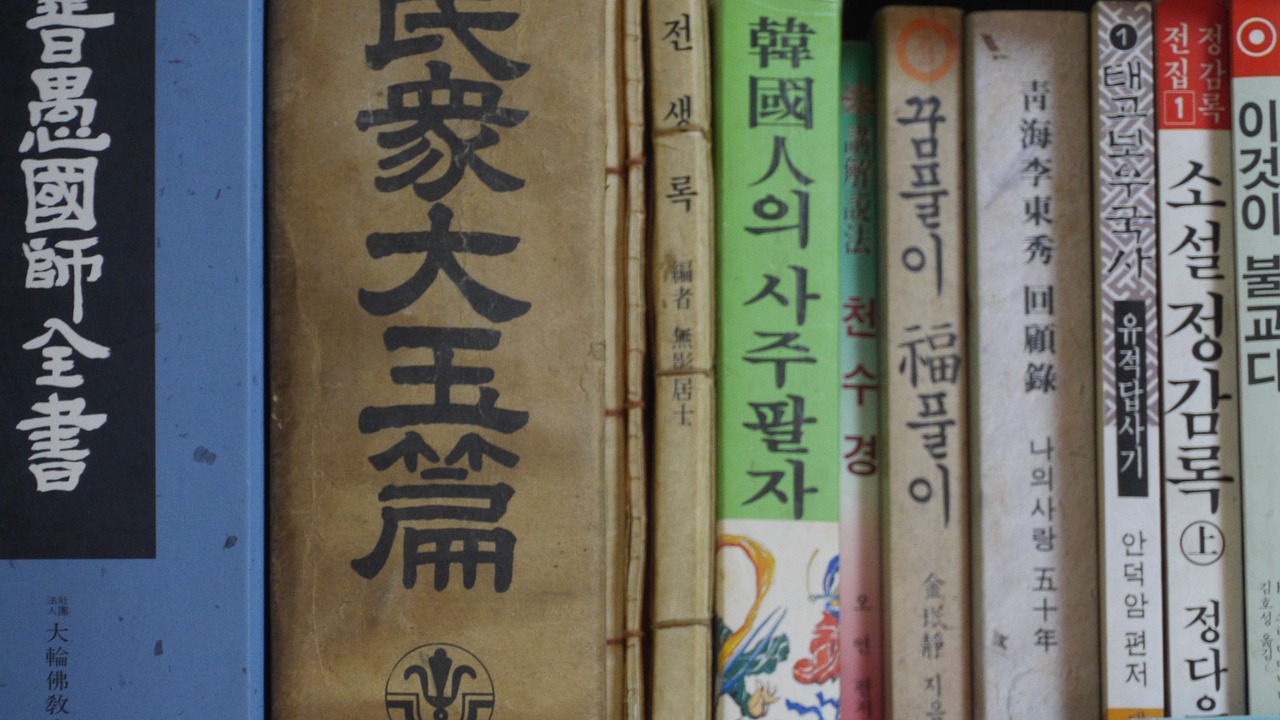 普愚國師全書
社團
法人
大輪佛敎
民衆大玉篇
전생록
編者 無影居士
韓國人의 사주팔자
講解説法
천수경
꿈풀이 福풀이
지음
靑海李東秀 回顧錄
나의사랑 五十年
1
태고보우국사
유적답사기
안덕암 편저
정감록
전집
1
소설 정감록 上
이것이 불교다
김호성 옮김